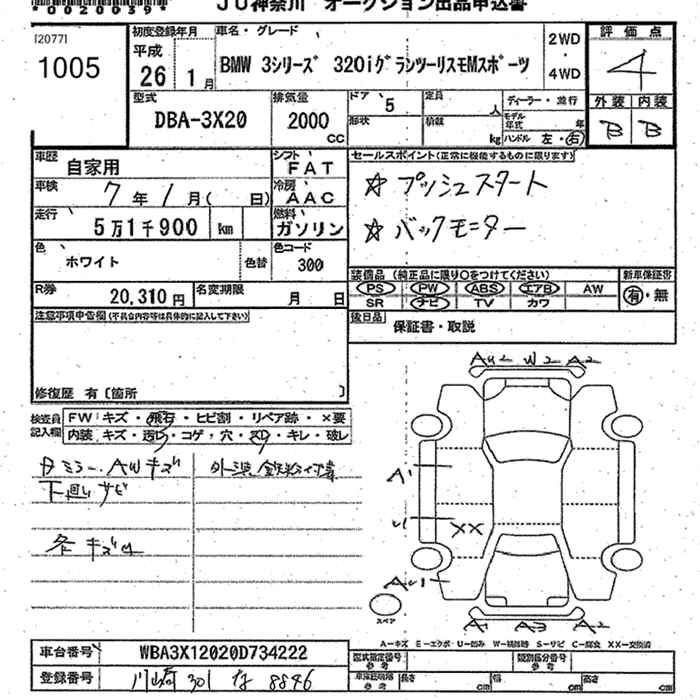 *0020039* JU神奈川 オークション出品申込書
120771
1005
初度登録年月
平成
26年 1月
車名・グレード
BMW 3シリーズ 320iグランツーリスモMスポーツ
2WD
・
4WD
評価点
4
外装 内装
B B
型式
DBA-3X20
排気量
2000
CC
ドア 5
形状
定員
人
積載
kg
ディーラー・並行
モデル年式 年
ハンドル 左・右
車歴 自家用
シフト FAT
車検 7年1月( 日)
冷房 AAC
走行 5万1千900 km
燃料 ガソリン
色 ホワイト 色替
色コード 300
セールスポイント(正常に機能するものに限ります)
☆プッシュスタート
☆バックモニター
R券 20,310円
名変期限 月 日
装備品(純正品に限り○をつけてください) 新車保証書
PS PW ABS エアB AW 有・無
SR ナビ TV カワ
後日品 保証書・取説
注意事項申告欄(不具合内容等は具体的に記入して下さい)
修復歴 有〔箇所 〕
検査員記入欄
FW キズ・飛石・ヒビ割・リペア跡・×要
内装 キズ・汚れ・コゲ・穴・スリ・キレ・破レ
ミラー、AWキズ
外装鉄粉付着
下廻りサビ
各キズ
AU2 W2 A2
XX
AU1
A1 A3 A2
スペア
A-キズ E-エクボ U-凹み W-補修跡 S-サビ C-腐食 XX-交換済
車台番号 WBA3X12020D734222
登録番号 川崎 301 な 8846
型式指定番号 参考
類別区分番号 参考
車庫証明用 参考 長さ cm 幅 cm 高さ cm